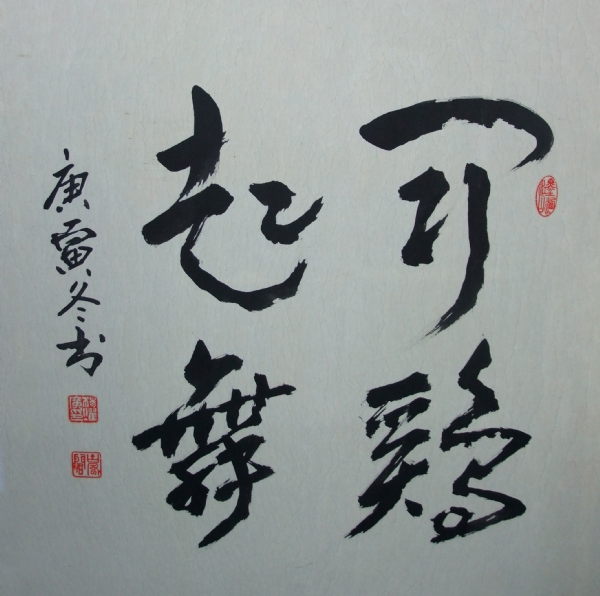 闻鸡
起舞
庚寅冬书